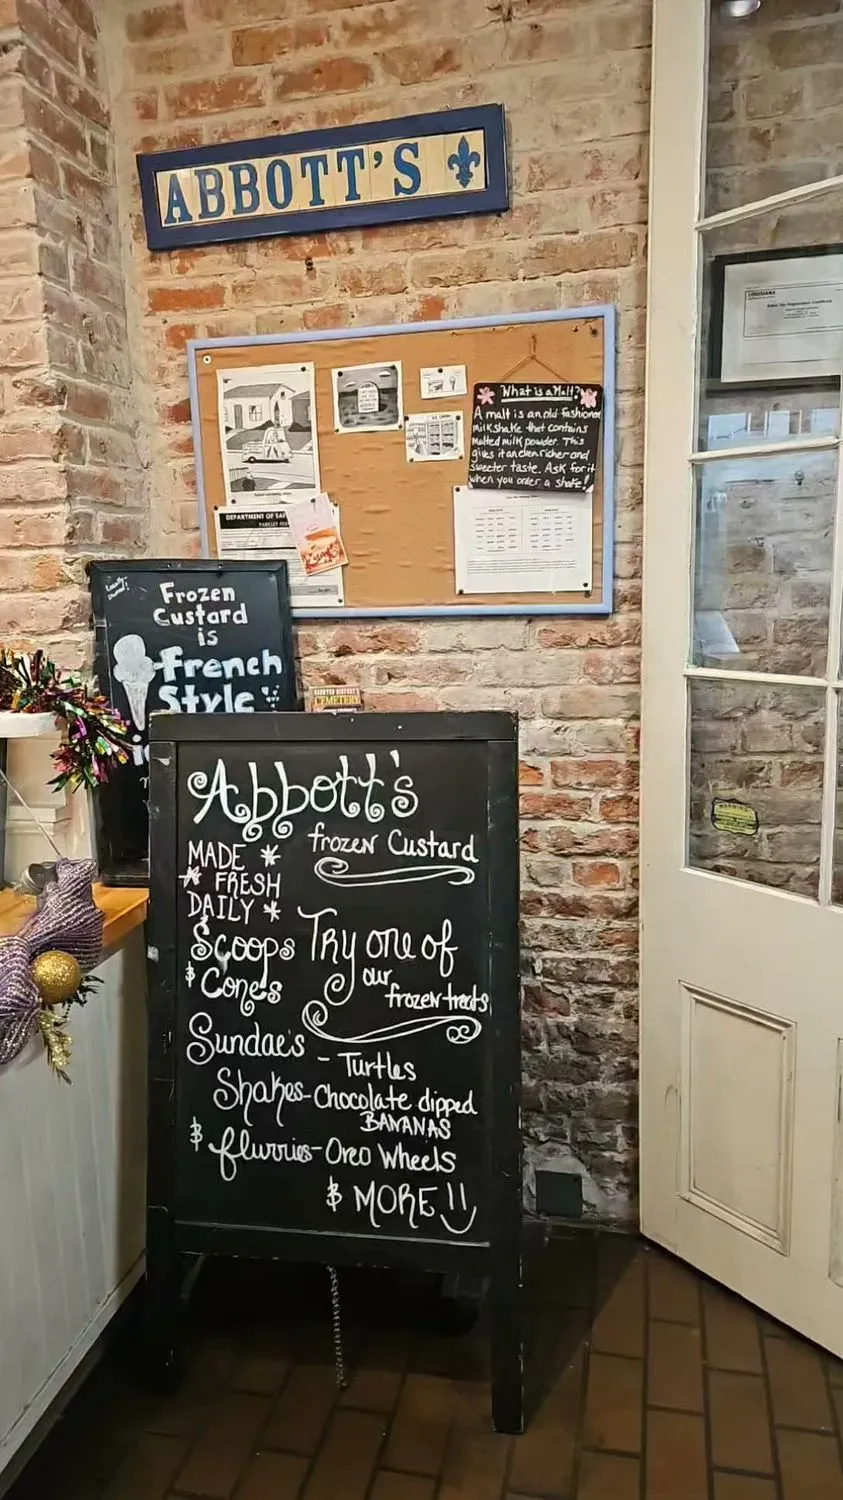 ABBOTT'S
What is a Malt?
A malt is an old fashioned
milkshake that contains
malted milk powder. This
gives it an even richer and
sweeter taste. Ask for it
when you order a shake!
DEPARTMENT OF
PARKLET
LOUISIANA
Frozen
Custard
is
French
Style
CEMETERY
Abbott's
frozen Custard
MADE
FRESH
DAILY
Scoops
& Cones
Try one of
our
frozen treats
Sundae's - Turtles
Shakes - Chocolate dipped
BANANAS
& flurries - Oreo Wheels
& MORE!!
WARNING!